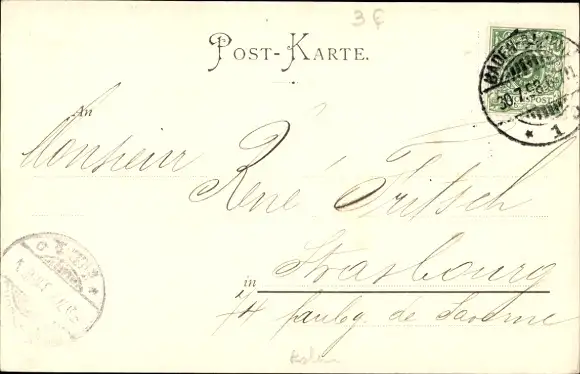 3 €
POST-KARTE.
BADEN-BADEN
30.7.98
REICHSPOST
* 1
An
Monsieur
René Fritsch
in Strasbourg
74 faubg. de Saverne